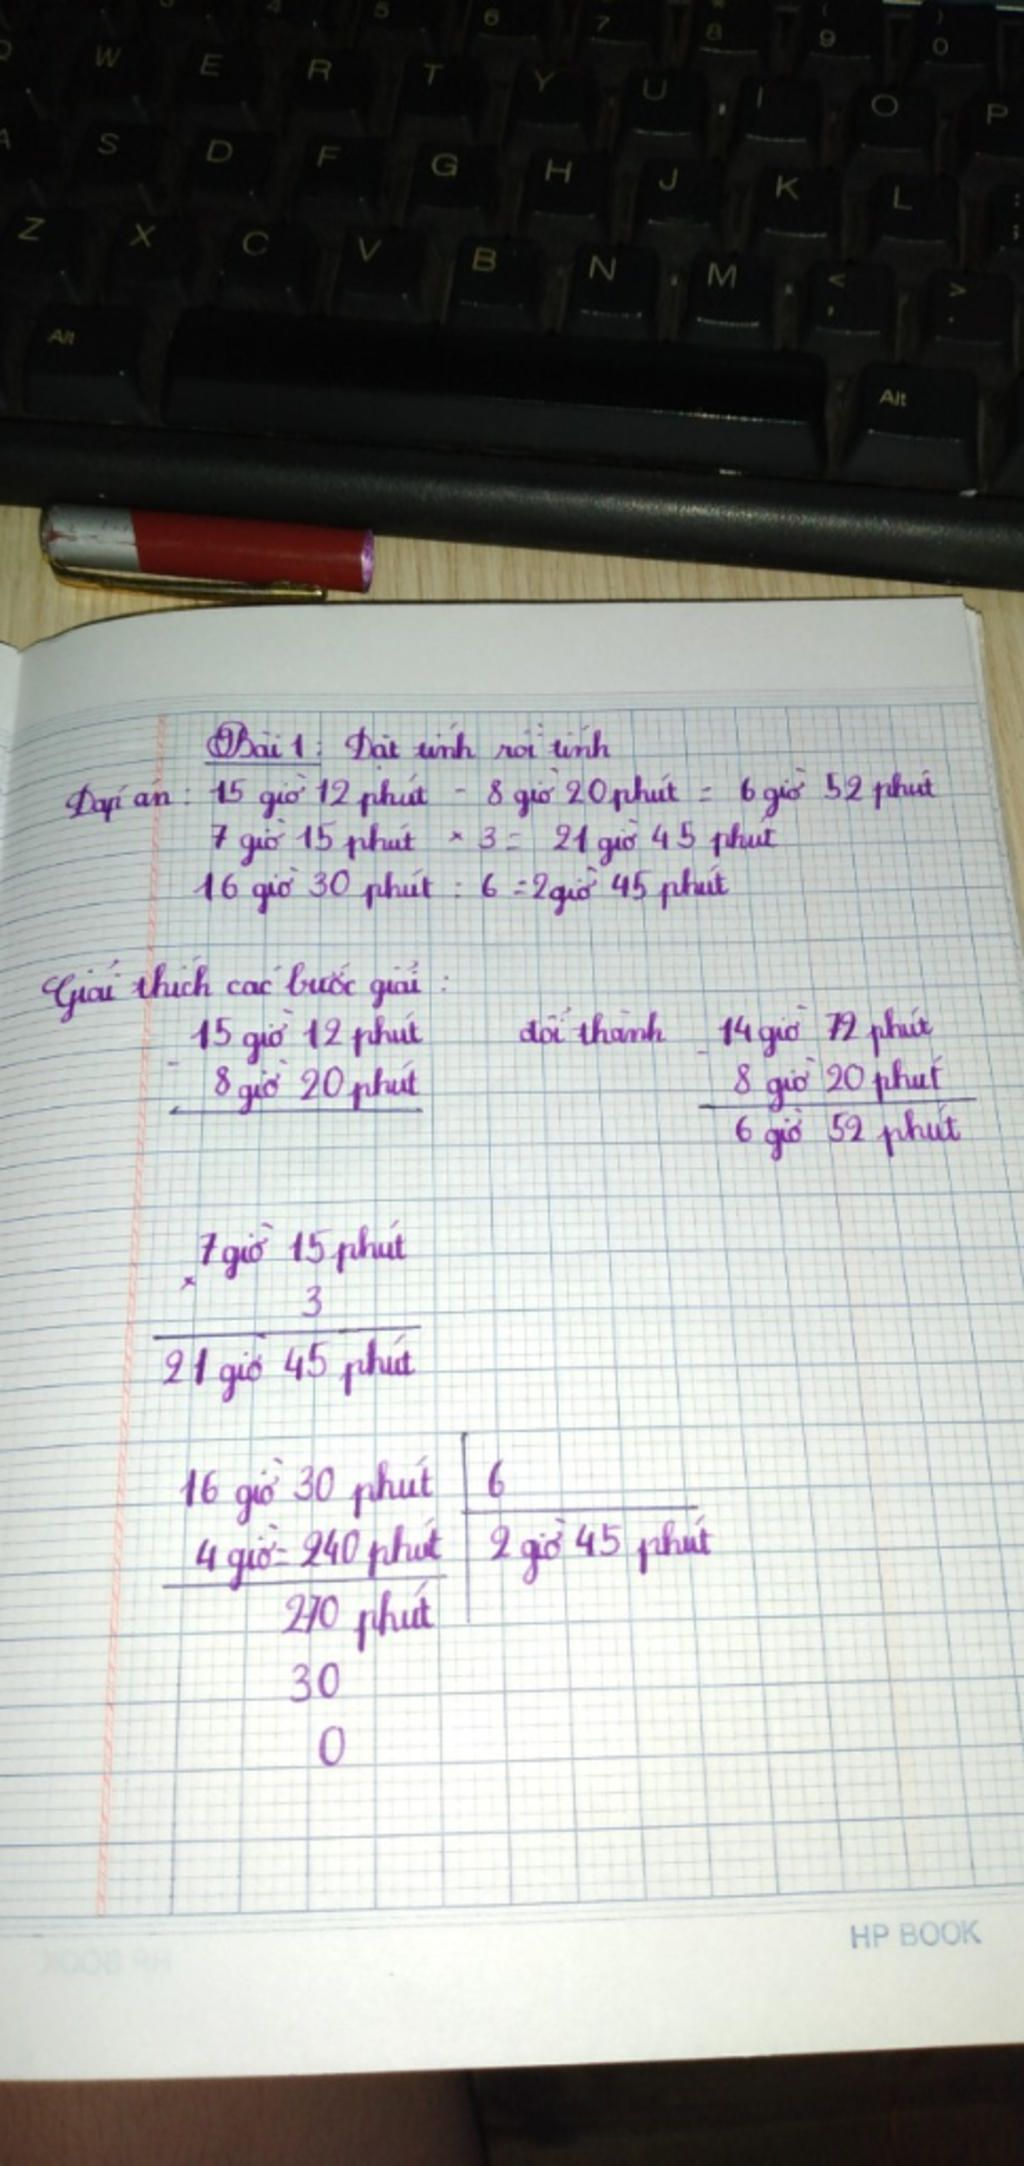 4 5 6 7 * 8 ( 9 ) 0
W E R T Y U I O P
A S D F G H J K L : ;
Z X C V B N M < , > .
Alt Alt
Bài 1: Đặt tính rồi tính
Đáp án: 15 giờ 12 phút - 8 giờ 20 phút = 6 giờ 52 phút
7 giờ 15 phút × 3 = 21 giờ 45 phút
16 giờ 30 phút : 6 = 2 giờ 45 phút
Giải thích các bước giải:
15 giờ 12 phút đổi thành 14 giờ 72 phút
- -
8 giờ 20 phút 8 giờ 20 phút
6 giờ 52 phút
7 giờ 15 phút
×
3
21 giờ 45 phút
16 giờ 30 phút 6
4 giờ = 240 phút 2 giờ 45 phút
270 phút
30
0
HP BOOK